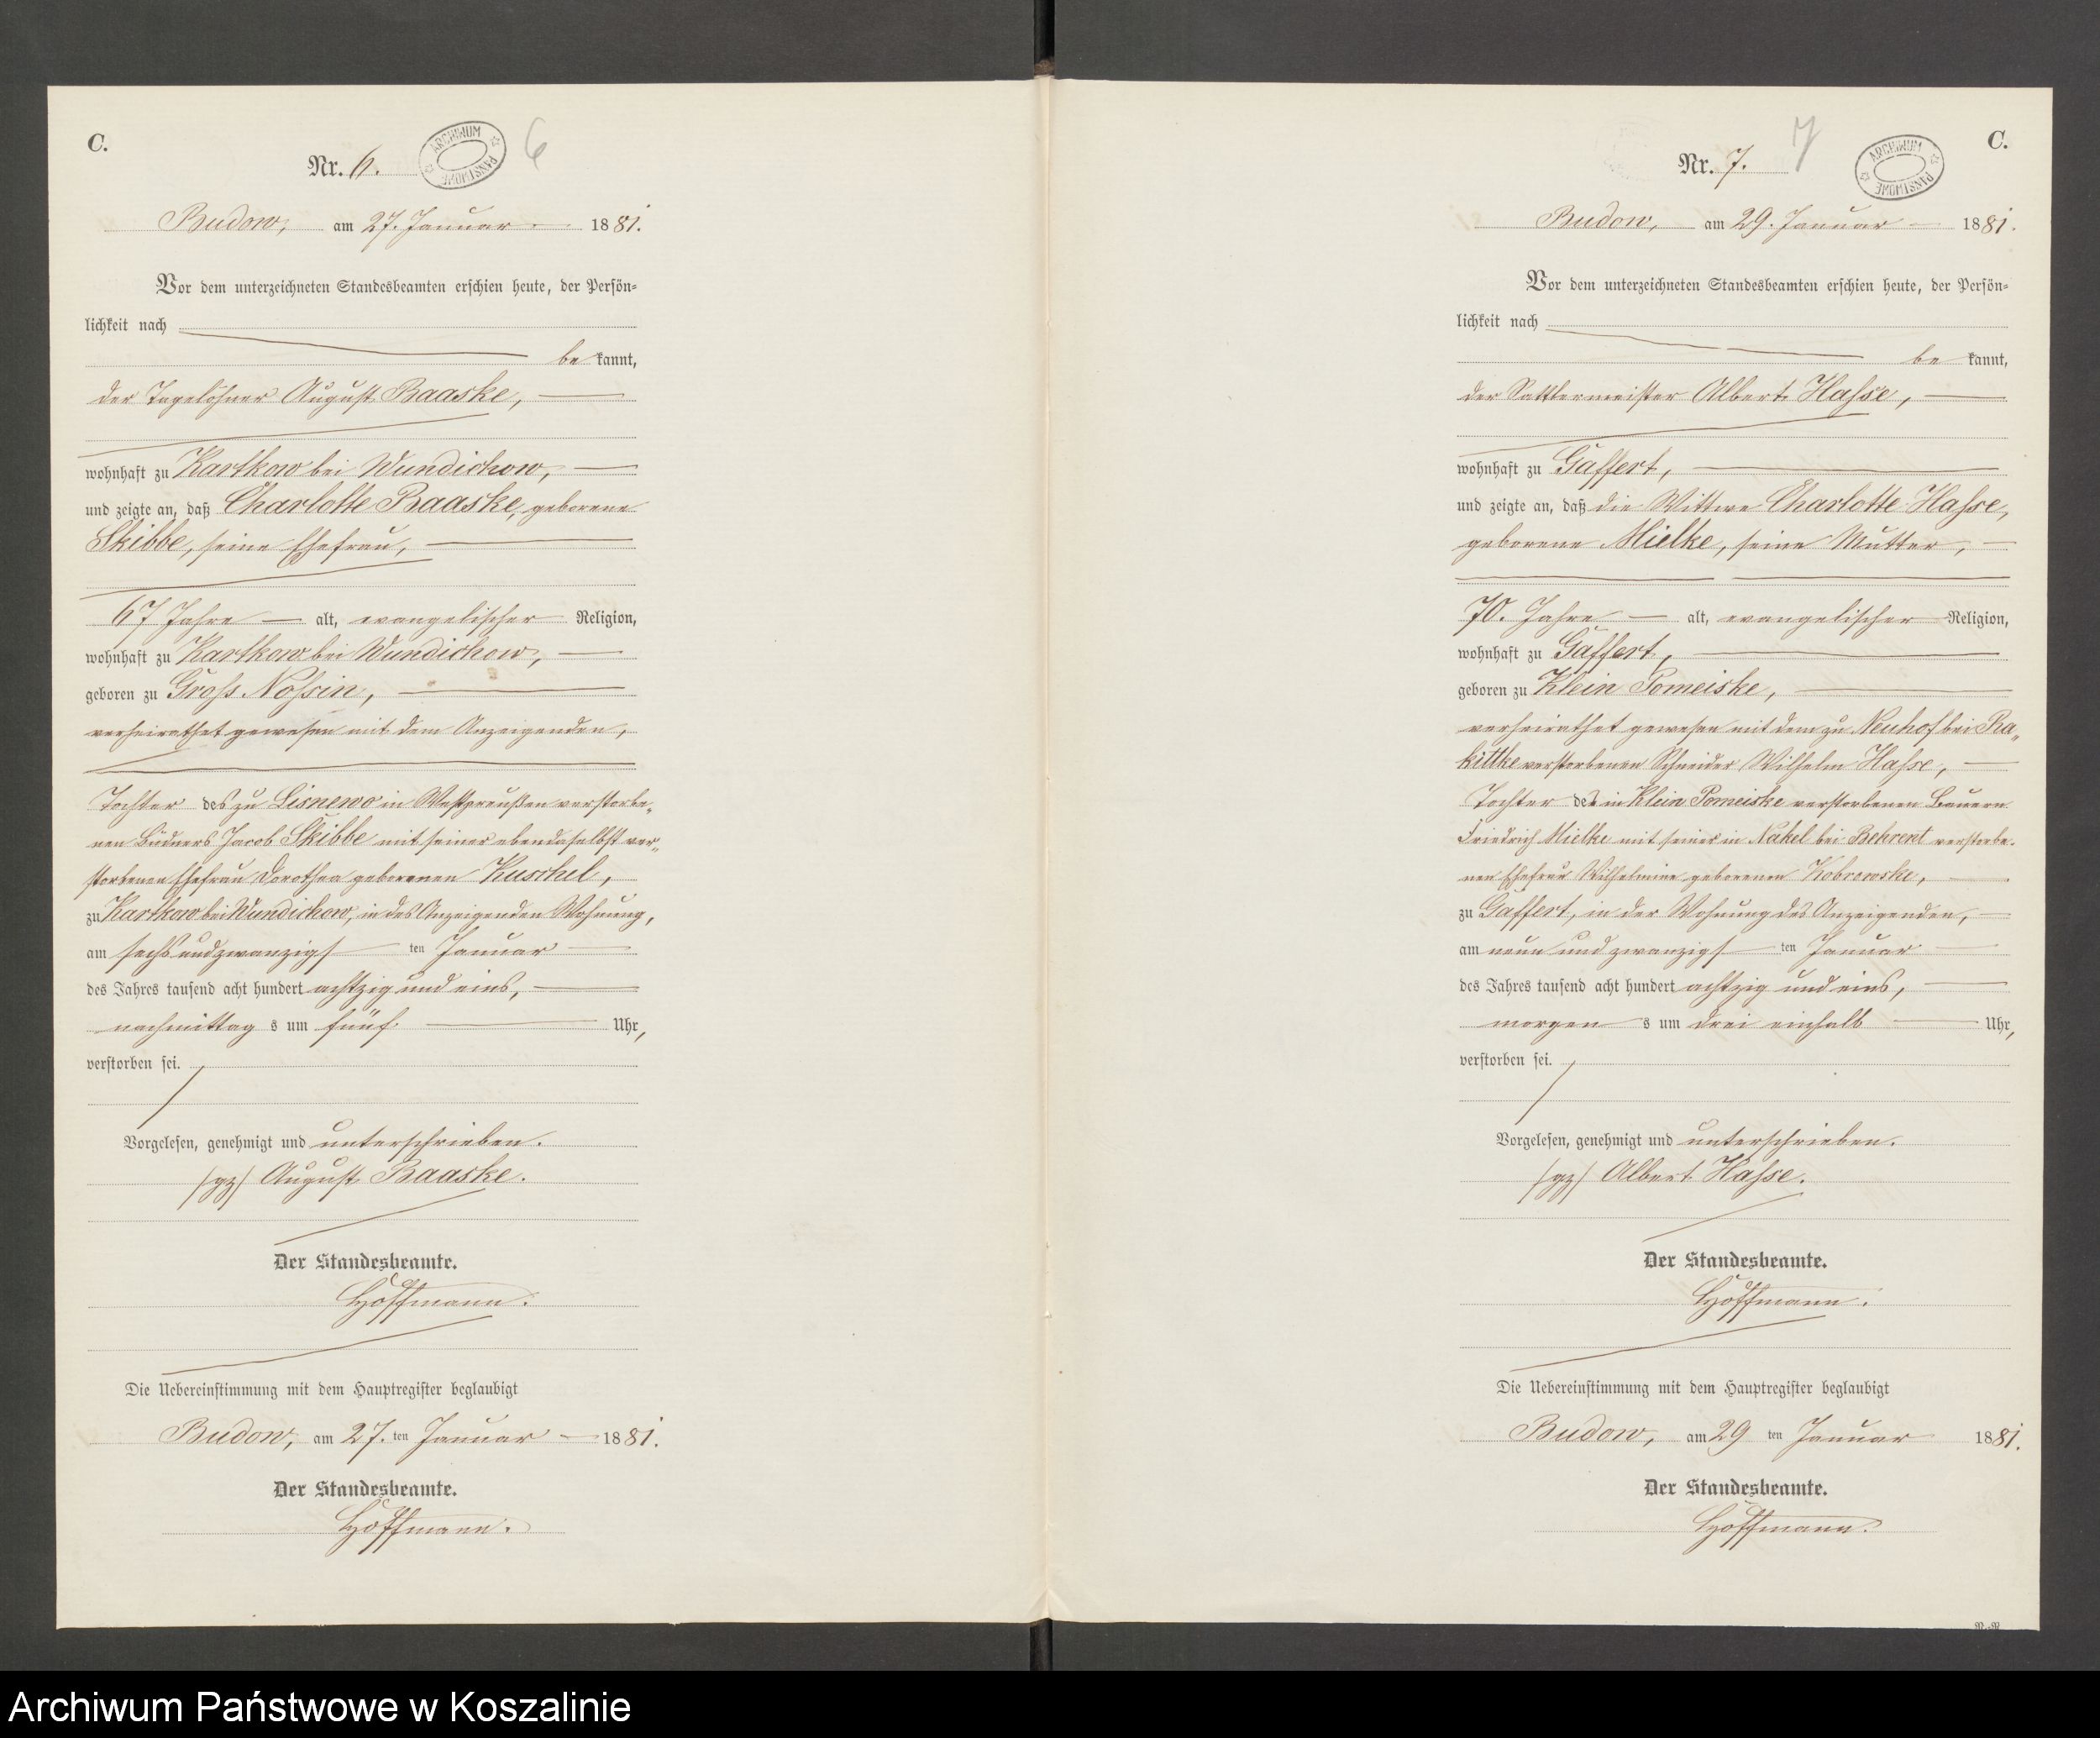 C.
Nr. 6.
ARCHIWUM PAŃSTWOWE
6
Budow, am 27. Januar 1881.
Vor dem unterzeichneten Standesbeamten erschien heute, der Persön-
lichkeit nach
be kannt,
der Tagelöhner August Baaske,
wohnhaft zu Kartkow bei Wundichow,
und zeigte an, daß Charlotte Baaske, geborene
Skibbe, seine Ehefrau,
67 Jahre alt, evangelischer Religion,
wohnhaft zu Kartkow bei Wundichow,
geboren zu Gross Nossin,
verheirathet gewesen mit dem Anzeigenden,
Tochter des zu Lisnewo in Westpreußen verstorbe-
nen Büdners Jacob Skibbe mit seiner ebendaselbst ver-
storbenen Ehefrau Dorothea geborenen Kuschel,
zu Kartkow bei Wundichow, in des Anzeigenden Wohnung,
am sechs und zwanzigsten Januar
des Jahres tausend acht hundert achtzig und eins,
nachmittag s um fünf Uhr,
verstorben sei.
Vorgelesen, genehmigt und unterschrieben.
(gz) August Baaske.
Der Standesbeamte.
Hoffmann.
Die Uebereinstimmung mit dem Hauptregister beglaubigt
Budow, am 27. ten Januar 1881.
Der Standesbeamte.
Hoffmann.
C.
Nr. 7.
7
ARCHIWUM PAŃSTWOWE
Budow, am 29. Januar 1881.
Vor dem unterzeichneten Standesbeamten erschien heute, der Persön-
lichkeit nach
be kannt,
der Sattlermeister Albert Hasse,
wohnhaft zu Gaffert,
und zeigte an, daß die Wittwe Charlotte Hasse,
geborene Mielke, seine Mutter,
70. Jahre alt, evangelischer Religion,
wohnhaft zu Gaffert,
geboren zu Klein Pomeiske,
verheirathet gewesen mit dem zu Neuhof bei Ra-
kittke verstorbenen Schneider Wilhelm Hasse,
Tochter des in Klein Pomeiske verstorbenen Bauern
Friedrich Mielke mit seiner in Nakel bei Behrent verstorbe-
nen Ehefrau Wilhelmine geborenen Kobrowske,
zu Gaffert, in der Wohnung des Anzeigenden,
am neun und zwanzigsten Januar
des Jahres tausend acht hundert achtzig und eins,
morgen s um drei einhalb Uhr,
verstorben sei.
Vorgelesen, genehmigt und unterschrieben.
(gz) Albert Hasse.
Der Standesbeamte.
Hoffmann.
Die Uebereinstimmung mit dem Hauptregister beglaubigt
Budow, am 29 ten Januar 1881.
Der Standesbeamte.
Hoffmann.
Archiwum Państwowe w Koszalinie